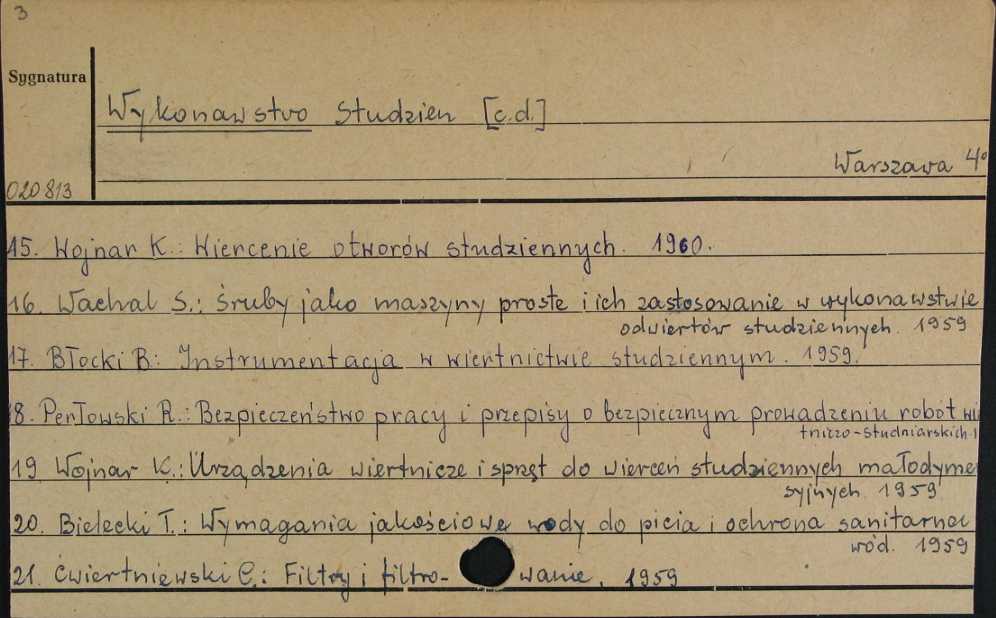 3
Sygnatura
Wykonawstwo Studzien [c.d.]
Warszawa 4°
020813
15. Wojnar K.: Wiercenie otworów studziennych. 1960.
16. Wachal S.: Śruby jako maszyny proste i ich zastosowanie w wykonawstwie
odwiertów studziennych. 1959
17. Błocki B: Instrumentacja w wiertnictwie studziennym. 1959.
18. Perłowski R.: Bezpieczeństwo pracy i przepisy o bezpiecznym prowadzeniu robót wi
tniczo-studniarskich.
19 Wojnar K.: Urządzenia wiertnicze i spręt do wierceń studziennych małodyme
syjnych. 1959
20. Bielecki T.: Wymagania jakościowe wody do picia i ochrona sanitarna
wód. 1959
21. Ćwiertniewski C.: Filtry i filtro- wanie. 1959